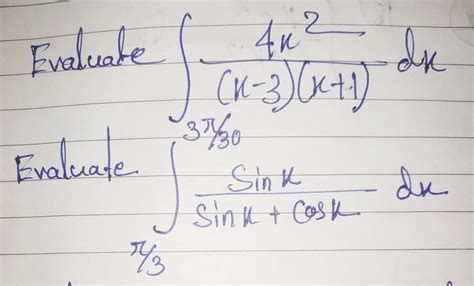 Evaluate ∫ 4x² / (x-3)(x+1) dx
Evaluate ∫_{π/3}^{3π/30} sin x / sin x + cos x dx